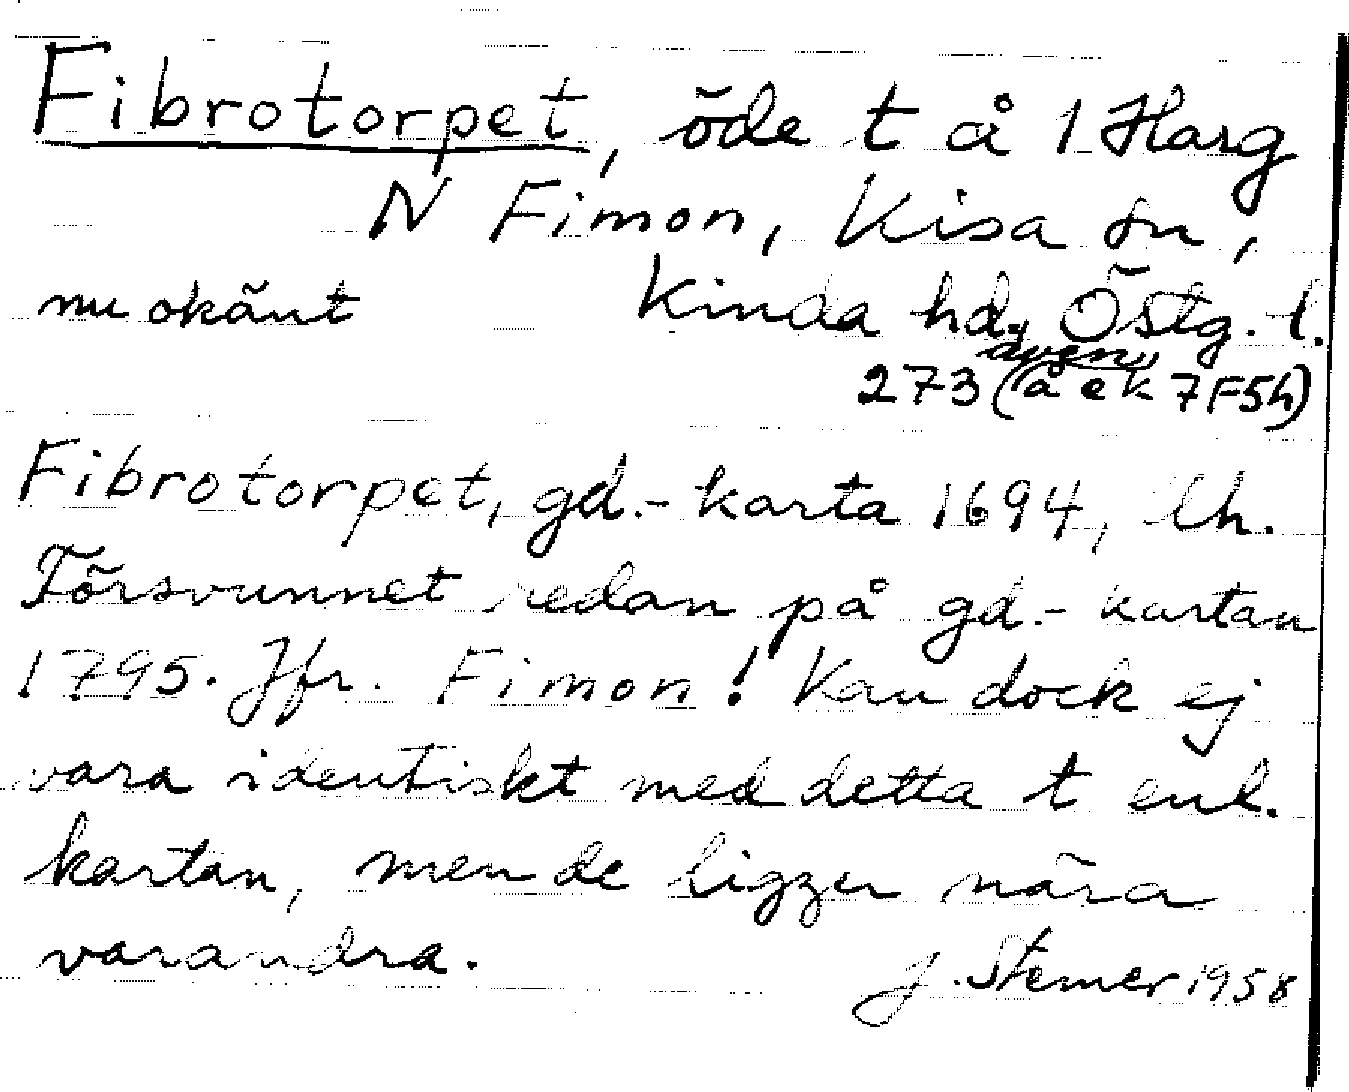 Fibrotorpet, öde t å 1 Harg
N Fimon, Kisa sn,
nu okänt Kinda hd, Östg. l.
även
273 (å ek 7F5h)
Fibrotorpet, gd.- karta 1694, Lh.
Försvunnet redan på gd.- kartan
1795. Jfr. Fimon! Kan dock ej
vara identiskt med detta t enl.
kartan, men de ligger nära
varandra.
J. Stemer 1958